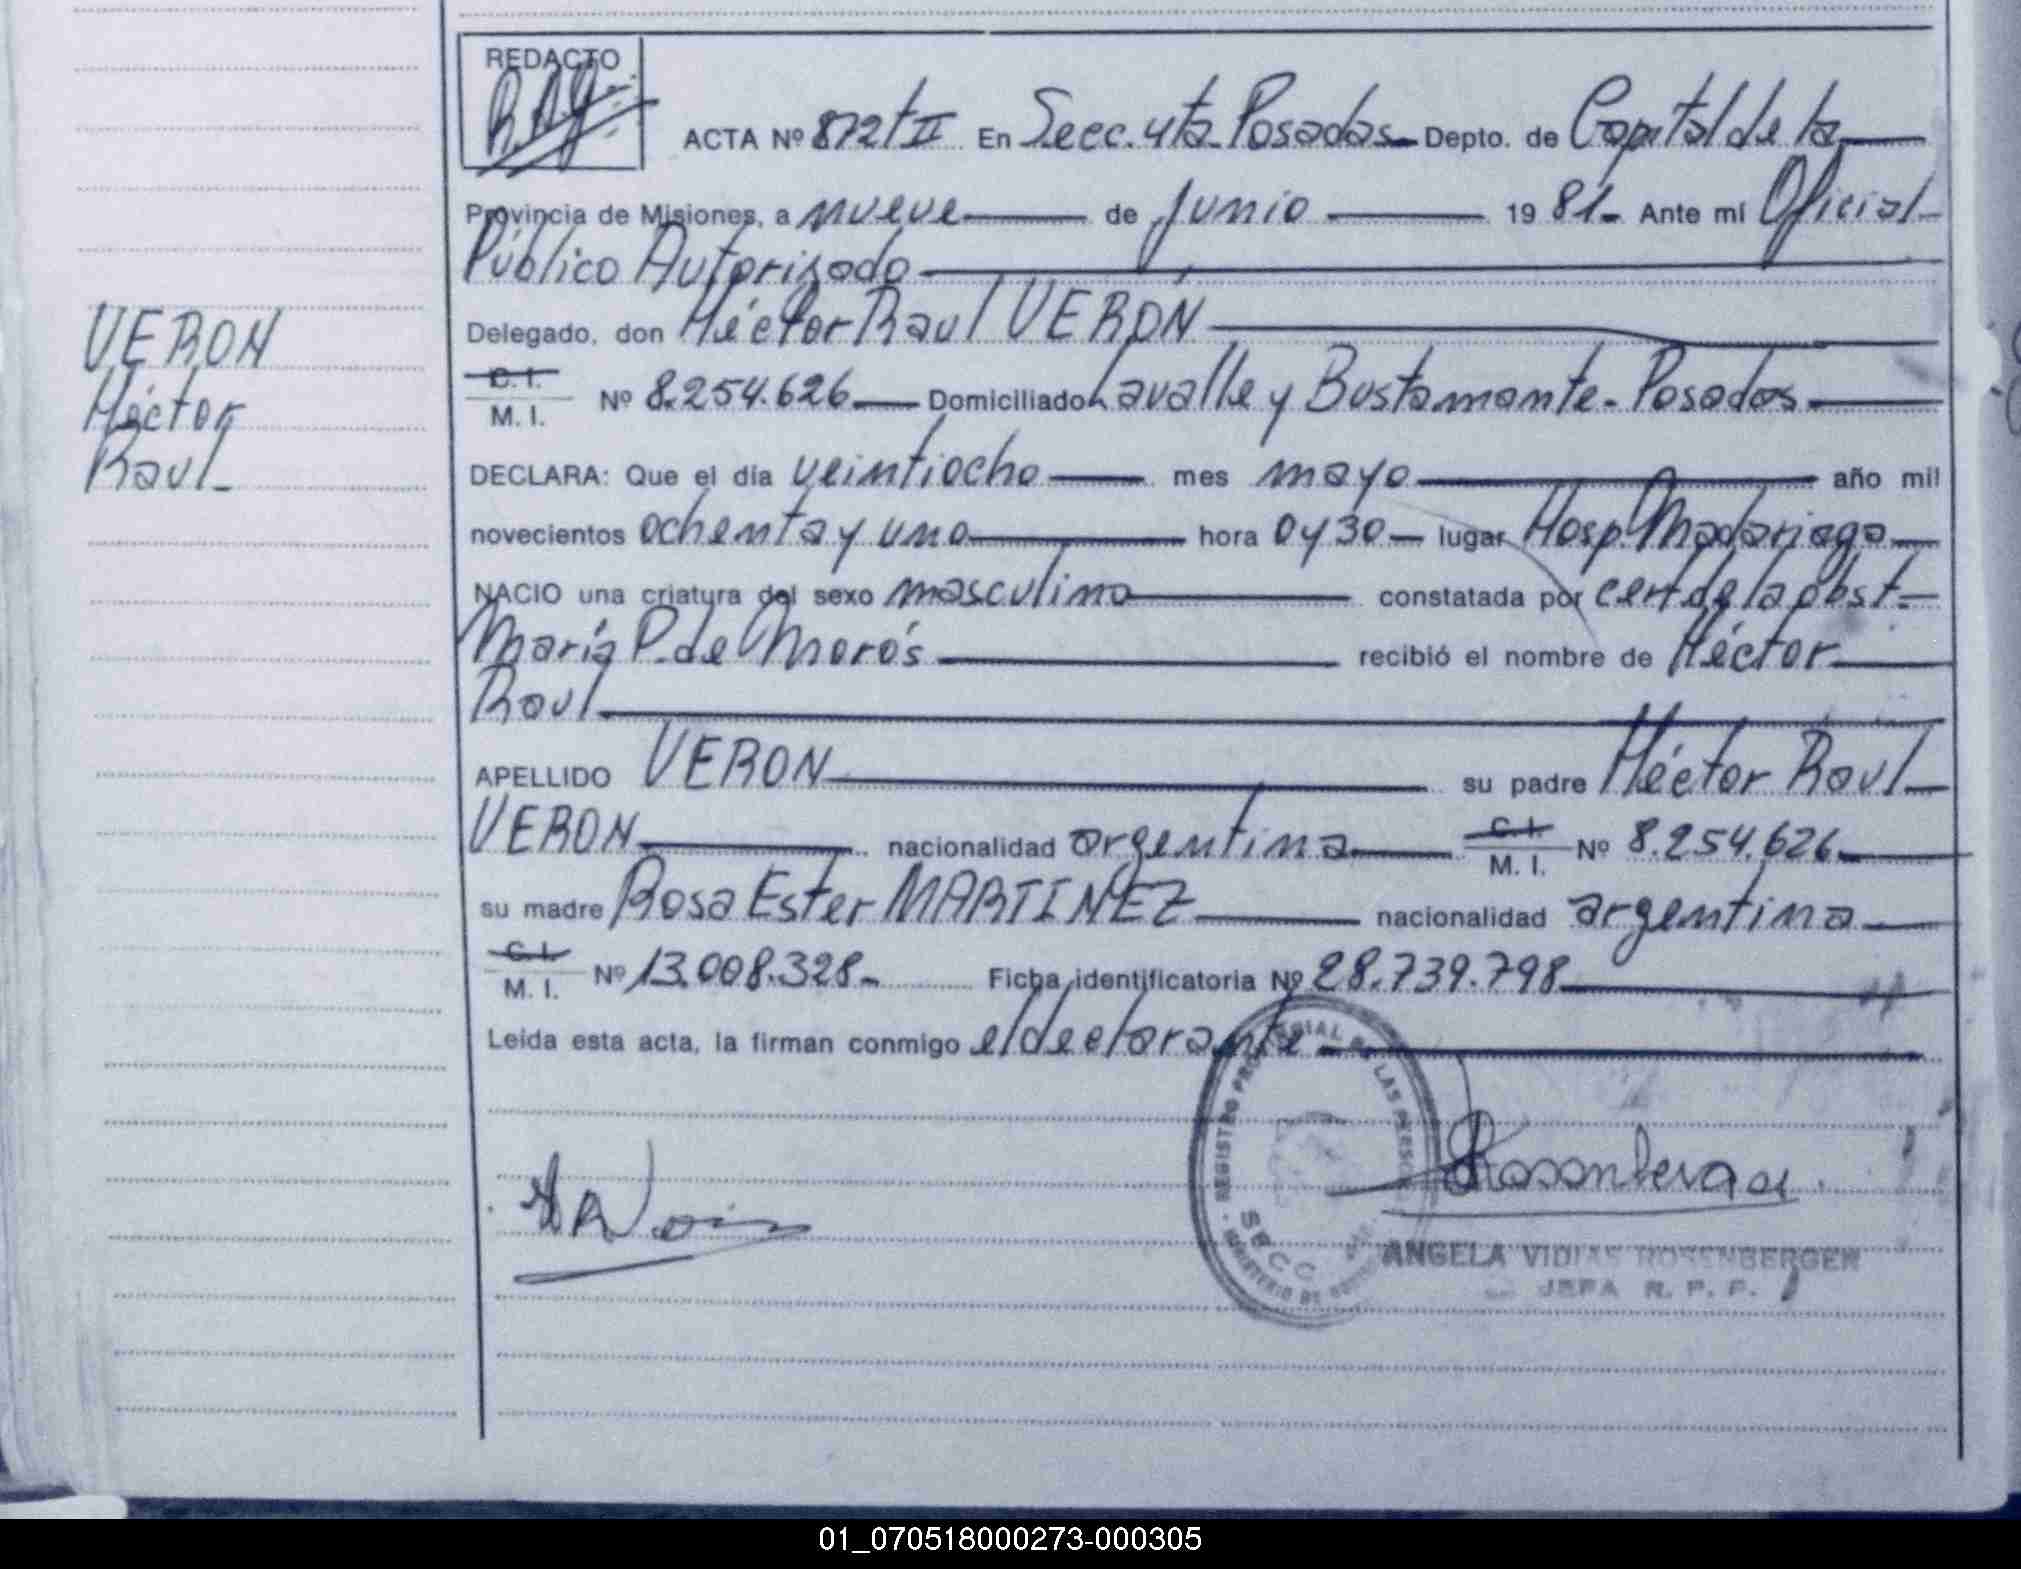 REDACTO
ACTA Nº 872 tII En Secc. 4ta. Posadas Depto. de Capital de la
Provincia de Misiones, a nueve de junio 19 81 Ante mí Oficial
Público Autorizado
Delegado, don Héctor Raul VERON
C. I.
M. I. Nº 8.254.626 Domiciliado Lavalle y Bustamante - Posadas
DECLARA: Que el día veintiocho mes mayo año mil
novecientos ochenta y uno hora 0y30 lugar Hosp. Madariaga
NACIO una criatura del sexo masculino constatada por cert. de la obst.
María P. de Morós recibió el nombre de Héctor
Raul
APELLIDO VERON su padre Héctor Raul
VERON nacionalidad argentina C. I. M. I. Nº 8.254.626
su madre Rosa Ester MARTINEZ nacionalidad argentina
C. I.
M. I. Nº 13.008.328 Ficha identificatoria Nº 28.739.798
Leída esta acta, la firman conmigo el declarante
VERON
Héctor
Raul
REGISTRO PROVINCIAL DE LAS PERSONAS
MINISTERIO DE
ANGELA VIDIAS ROSENBERGER
JEFA R. P. P.
01_070518000273-000305